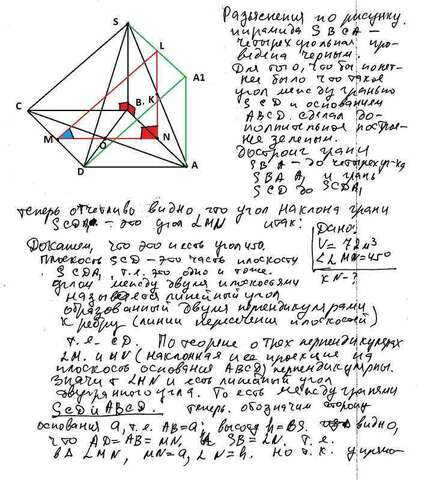 S
L
A1
C
B.
K
M
O
N
D
A
Разъяснения по рисунку.
пирамида SBCA –
четырехугольная про-
ведена черным.
Для того, что бы понят-
нее было что такое
угол между гранью
SCD и основанием
ABCD. сделал до-
полнительное построе-
ние зеленым.
Достроил грани
SBA – до четырехуг-ка
SBAA1 и грань
SCD до SCDA1
теперь отчетливо видно что угол наклона грани
SCDA1 – это угол LMN итак:
Дано:
V = 72м3
∠LMN=450
KN-?
Докажем, что это и есть угол
плоскость SCD – это часть плоскости
SCDA1 т.е. это одно и тоже.
углом между двумя плоскостями
называется линейный угол
образованный двумя перпендикулярами
к ребру (линии пересечения плоскостей)
т.е. CD. По теореме о трех перпендикулярах
LM. и MN (наклонная и ее проекция на
плоскость основания ABCD) перпендикулярны.
значит LMN и есть линейный угол
двугранного угла. То есть между гранями
SCD и ABCD. теперь обозначим сторону
основания a, т.е. AB=a; высота h=BS. видно,
что AD=AB=MN, SB=LN. т.е.
в Δ LMN, MN=a, LN=h. Но т.к.